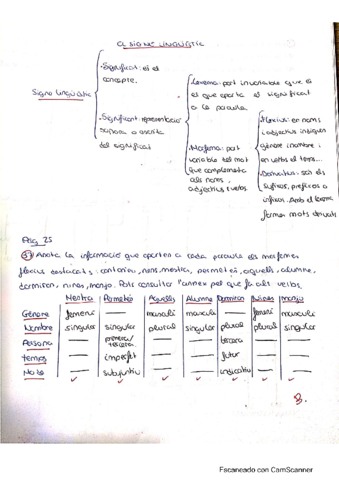 EL SIGNE LINGÜÍSTIC
Signe Lingüístic
·Significat: és el
concepte.
·Significant: representació
sonora o escrita
del significat
·Lexema: part invariable que és
el que aporta el significat
a la paraula
·Morfema: part
variable del mot
que complementa
als noms,
adjectius i verbs.
·Flexius: en noms
i adjectius indiquen
gènere i nombre i
en verbs el temps...
·Derivatius: són els
sufixos, prefixos o
infixos. Amb el lexema
formen mots derivats
Pàg 25
Anota la informació que aporten a cada paraula els morfemes
flexius destacats: cantarieu, nens, mestra, permeteś, aquells, alumne,
dormiran, nines, monjo. Pots consultar l'annex pel que fa als verbs.
Mestra Permetés Aquells Alumne Dormiran Nines monjo
Gènere femení — masculí masculí — femení masculí
Nombre singular singular plural singular plural plural singular
Persona — primera/ — — tercera — —
tercera
temps — imperfet — — futur — —
Mode — subjuntiu — — indicatiu — —
Escaneado con CamScanner